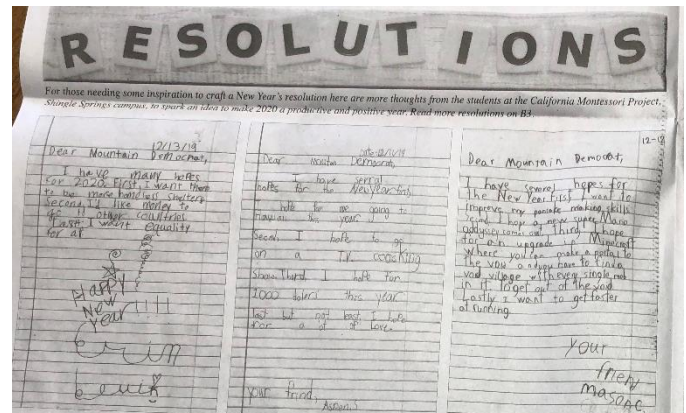 RESOLUTIONS
For those needing some inspiration to craft a New Year's resolution here are more thoughts from the students at the California Montessori Project,
Shingle Springs campus, to spark an idea to make 2020 a productive and positive year. Read more resolutions on B3.
12/13/19
Dear Mountain Democrat,
I have many hopes
for 2020. First, I want there
to be more homeless shelters
Second I'd like money to
go to other countries
Last I want equality
for all
Happy
New
year!!!!
Erin
Dear Democrat,
I have
hopes for the New year first
I hope for me going to
this year
Second I hope to go
on a T.V. coocking
Show third I hope for
1000 dolers this year
last but not least I hope
for a lot of Love.
your frind,
12-1
Dear Mountain Democrat,
I have several hopes for
the New Year first I want to
improve my pancake making skills
I hope a new super Mario
oddysey comes out Third I hope
for an upgrade in Minecraft
Where you can make a portal to
the void and you have to find a
void village with every single mob
in it to get out of the void
Lastly I want to get faster
at running.
your
frien